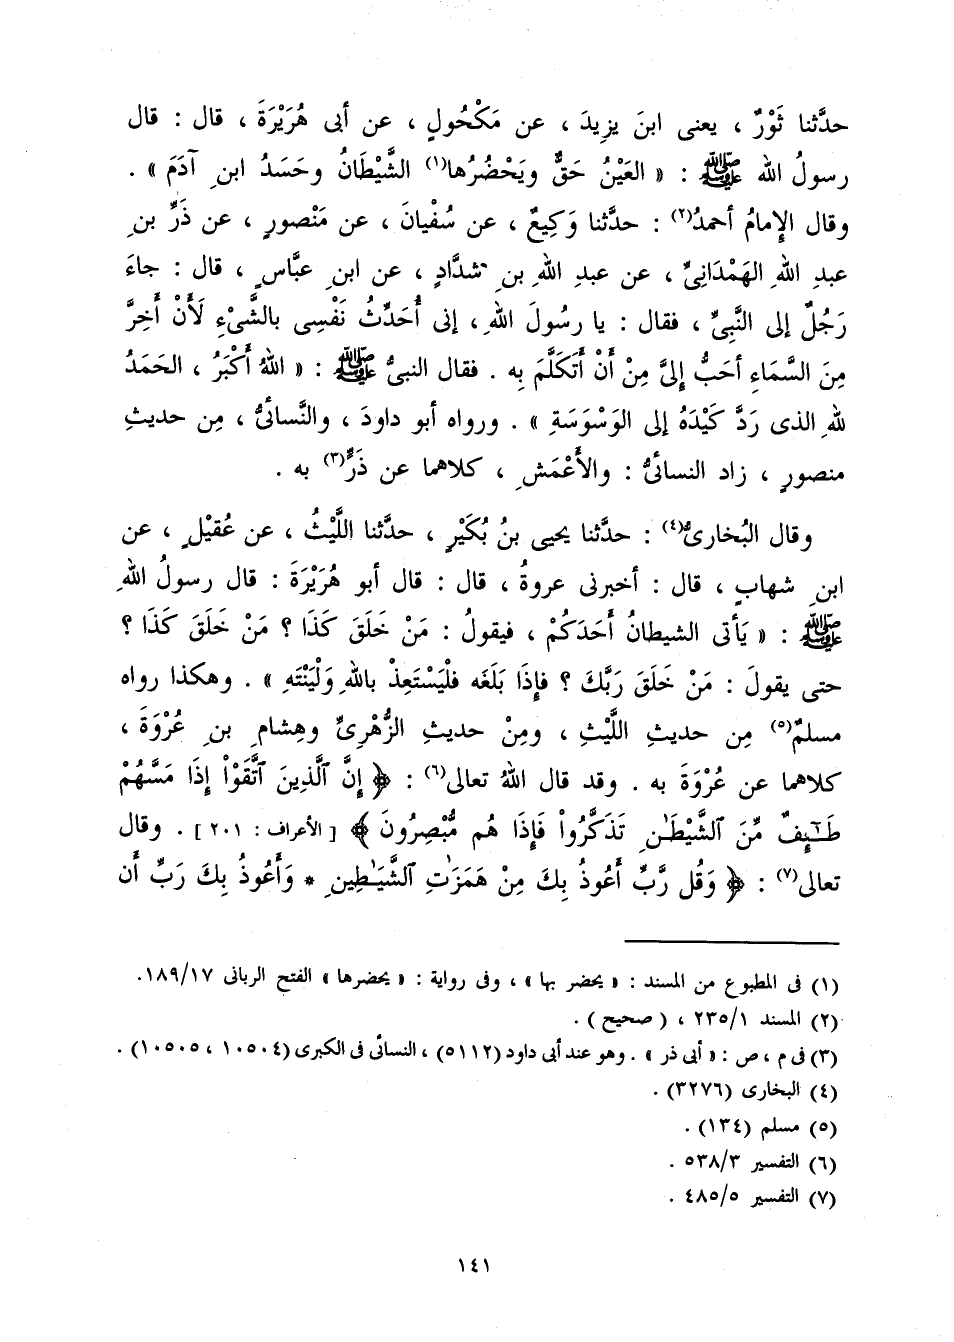 حدَّثنا ثَوْرٌ ، يعنى ابنَ يزِيدَ ، عن مَكْحُولٍ ، عن أبى هُرَيْرَةَ ، قال : قال
رسولُ الله ﷺ : « العَيْنُ حَقٌّ ويَحْضُرُها(١) الشَّيْطَانُ وحَسَدُ ابنِ آدَمَ » .
وقال الإِمامُ أحمدُ(٢) : حدَّثنا وَكِيعٌ ، عن سُفْيانَ ، عن مَنْصورٍ ، عن ذَرِّ بنِ
عبدِ اللهِ الهَمْدَانِىِّ ، عن عبدِ اللهِ بنِ شدَّادٍ ، عن ابنِ عبَّاسٍ ، قال : جاءَ
رَجُلٌ إلى النَّبِىِّ ، فقال : يا رسُولَ اللهِ ، إنى أُحَدِّثُ نَفْسِى بالشَّىْءِ لَأَنْ أَخِرَّ
مِنَ السَّمَاءِ أحَبُّ إلىَّ مِنْ أَنْ أَتَكَلَّمَ بِه . فقال النبىُّ ﷺ : « اللهُ أَكْبَرُ ، الحَمَدُ
للهِ الذى رَدَّ كَيْدَهُ إلى الوَسْوَسَةِ » . ورواه أبو داودَ ، والنَّسائىُّ ، مِن حديثِ
منصورٍ ، زاد النسائىُّ : والأَعْمَشِ ، كلاهما عن ذَرٍّ(٣) به .
وقال البُخارىُّ(٤) : حدَّثنا يحيى بنُ بُكَيْرٍ ، حدَّثنا اللَّيْثُ ، عن عُقيْلٍ ، عن
ابنِ شهابٍ ، قال : أخبرنى عروةُ ، قال : قال أبو هُرَيْرَةَ : قال رسولُ اللهِ
ﷺ : « يَأتى الشيطانُ أحَدَكُمْ ، فيقولُ : مَنْ خَلَقَ كَذَا ؟ مَنْ خَلَقَ كَذَا ؟
حتى يقولَ : مَنْ خَلَقَ رَبَّكَ ؟ فإذَا بَلَغَه فلْيَسْتَعِذْ باللهِ وَلْيَنْتَهِ » . وهكذا رواه
مسلمٌ(٥) مِن حديثِ اللَّيْثِ ، ومِنْ حديثِ الزُّهْرِىِّ وهِشامِ بنِ عُرْوَةَ ،
كلاهما عن عُرْوَةَ به . وقد قال اللهُ تعالى(٦) : ﴿ إِنَّ ٱلَّذِينَ ٱتَّقَوْاْ إِذَا مَسَّهُمْ
طَـٰٓئِفٌ مِّنَ ٱلشَّيْطَـٰنِ تَذَكَّرُواْ فَإِذَا هُم مُّبْصِرُونَ ﴾ [ الأعراف : ٢٠١ ] . وقال
تعالى(٧) : ﴿ وَقُل رَّبِّ أَعُوذُ بِكَ مِنْ هَمَزَٰتِ ٱلشَّيَـٰطِينِ * وَأَعُوذُ بِكَ رَبِّ أَن
(١) فى المطبوع من المسند : « يحضر بها » ، وفى رواية : « يحضرها » الفتح الربانى ١٨٩/١٧.
(٢) المسند ٢٣٥/١ ، ( صحيح ) .
(٣) فى م ، ص : « أبى ذر » . وهو عند أبى داود (٥١١٢) ، النسائى فى الكبرى (١٠٥٠٤ ، ١٠٥٠٥) .
(٤) البخارى (٣٢٧٦) .
(٥) مسلم (١٣٤) .
(٦) التفسير ٥٣٨/٣ .
(٧) التفسير ٤٨٥/٥ .
١٤١